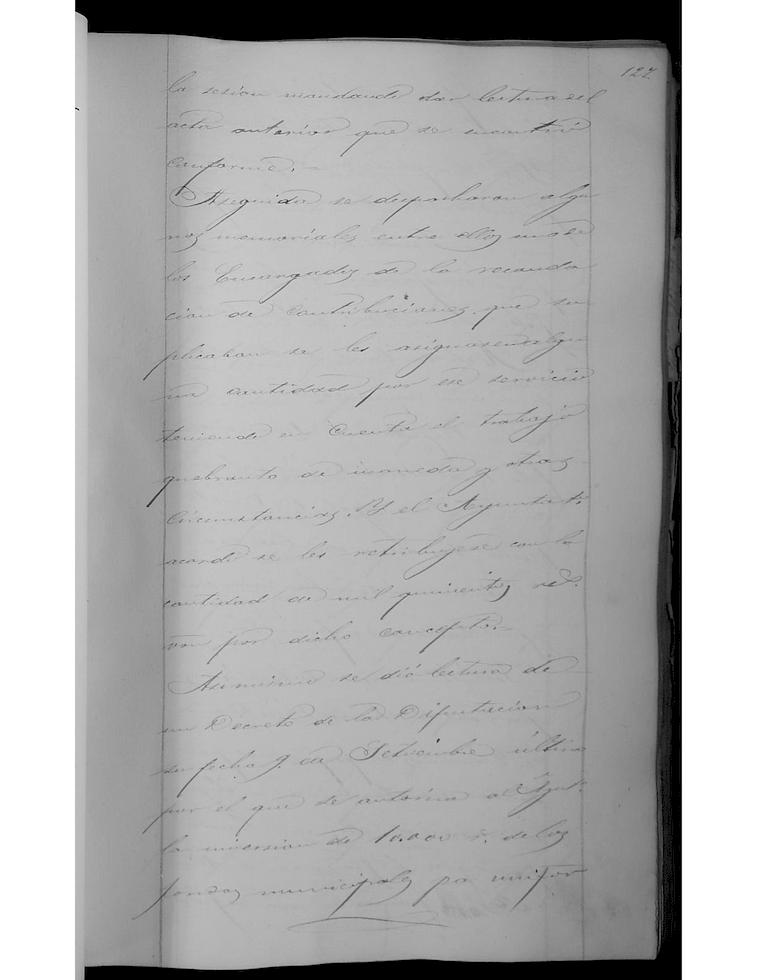 127
la sesion mandando dar lectura del
acta anterior que se encontró
conforme.
Aseguida se despacharon algu
nos memoriales entre ellos uno de
los Encargados de la recauda
cion de contribuciones que su
plicaban se les asignase algu
na cantidad por ese servicio
teniendo en cuenta el trabajo
quebranto de moneda y otras
circunstancias. Y el Ayuntamto
acordó se les retribuyese con la
cantidad de mil quinientos rs.
von por dicho concepto.
Asimismo se dió lectura de
un Decreto de la Diputacion
su fecha 9. de Setiembre último
por el que se autoriza al Ayunto
la inversion de 10.000 r. de los
fondos municipales pa unifor